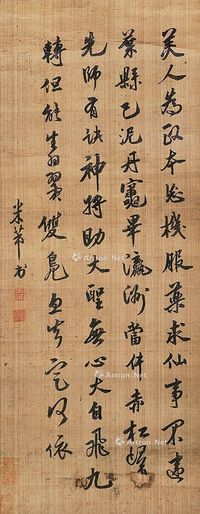 美人為政本忘機服藥求仙事不違
葉縣已泥丹竈畢瀛洲當伴赤松歸
先師有訣神將助大聖無心火自飛九
轉但能生羽翼雙鳧忽去定何依
米芾書
Artron.Net